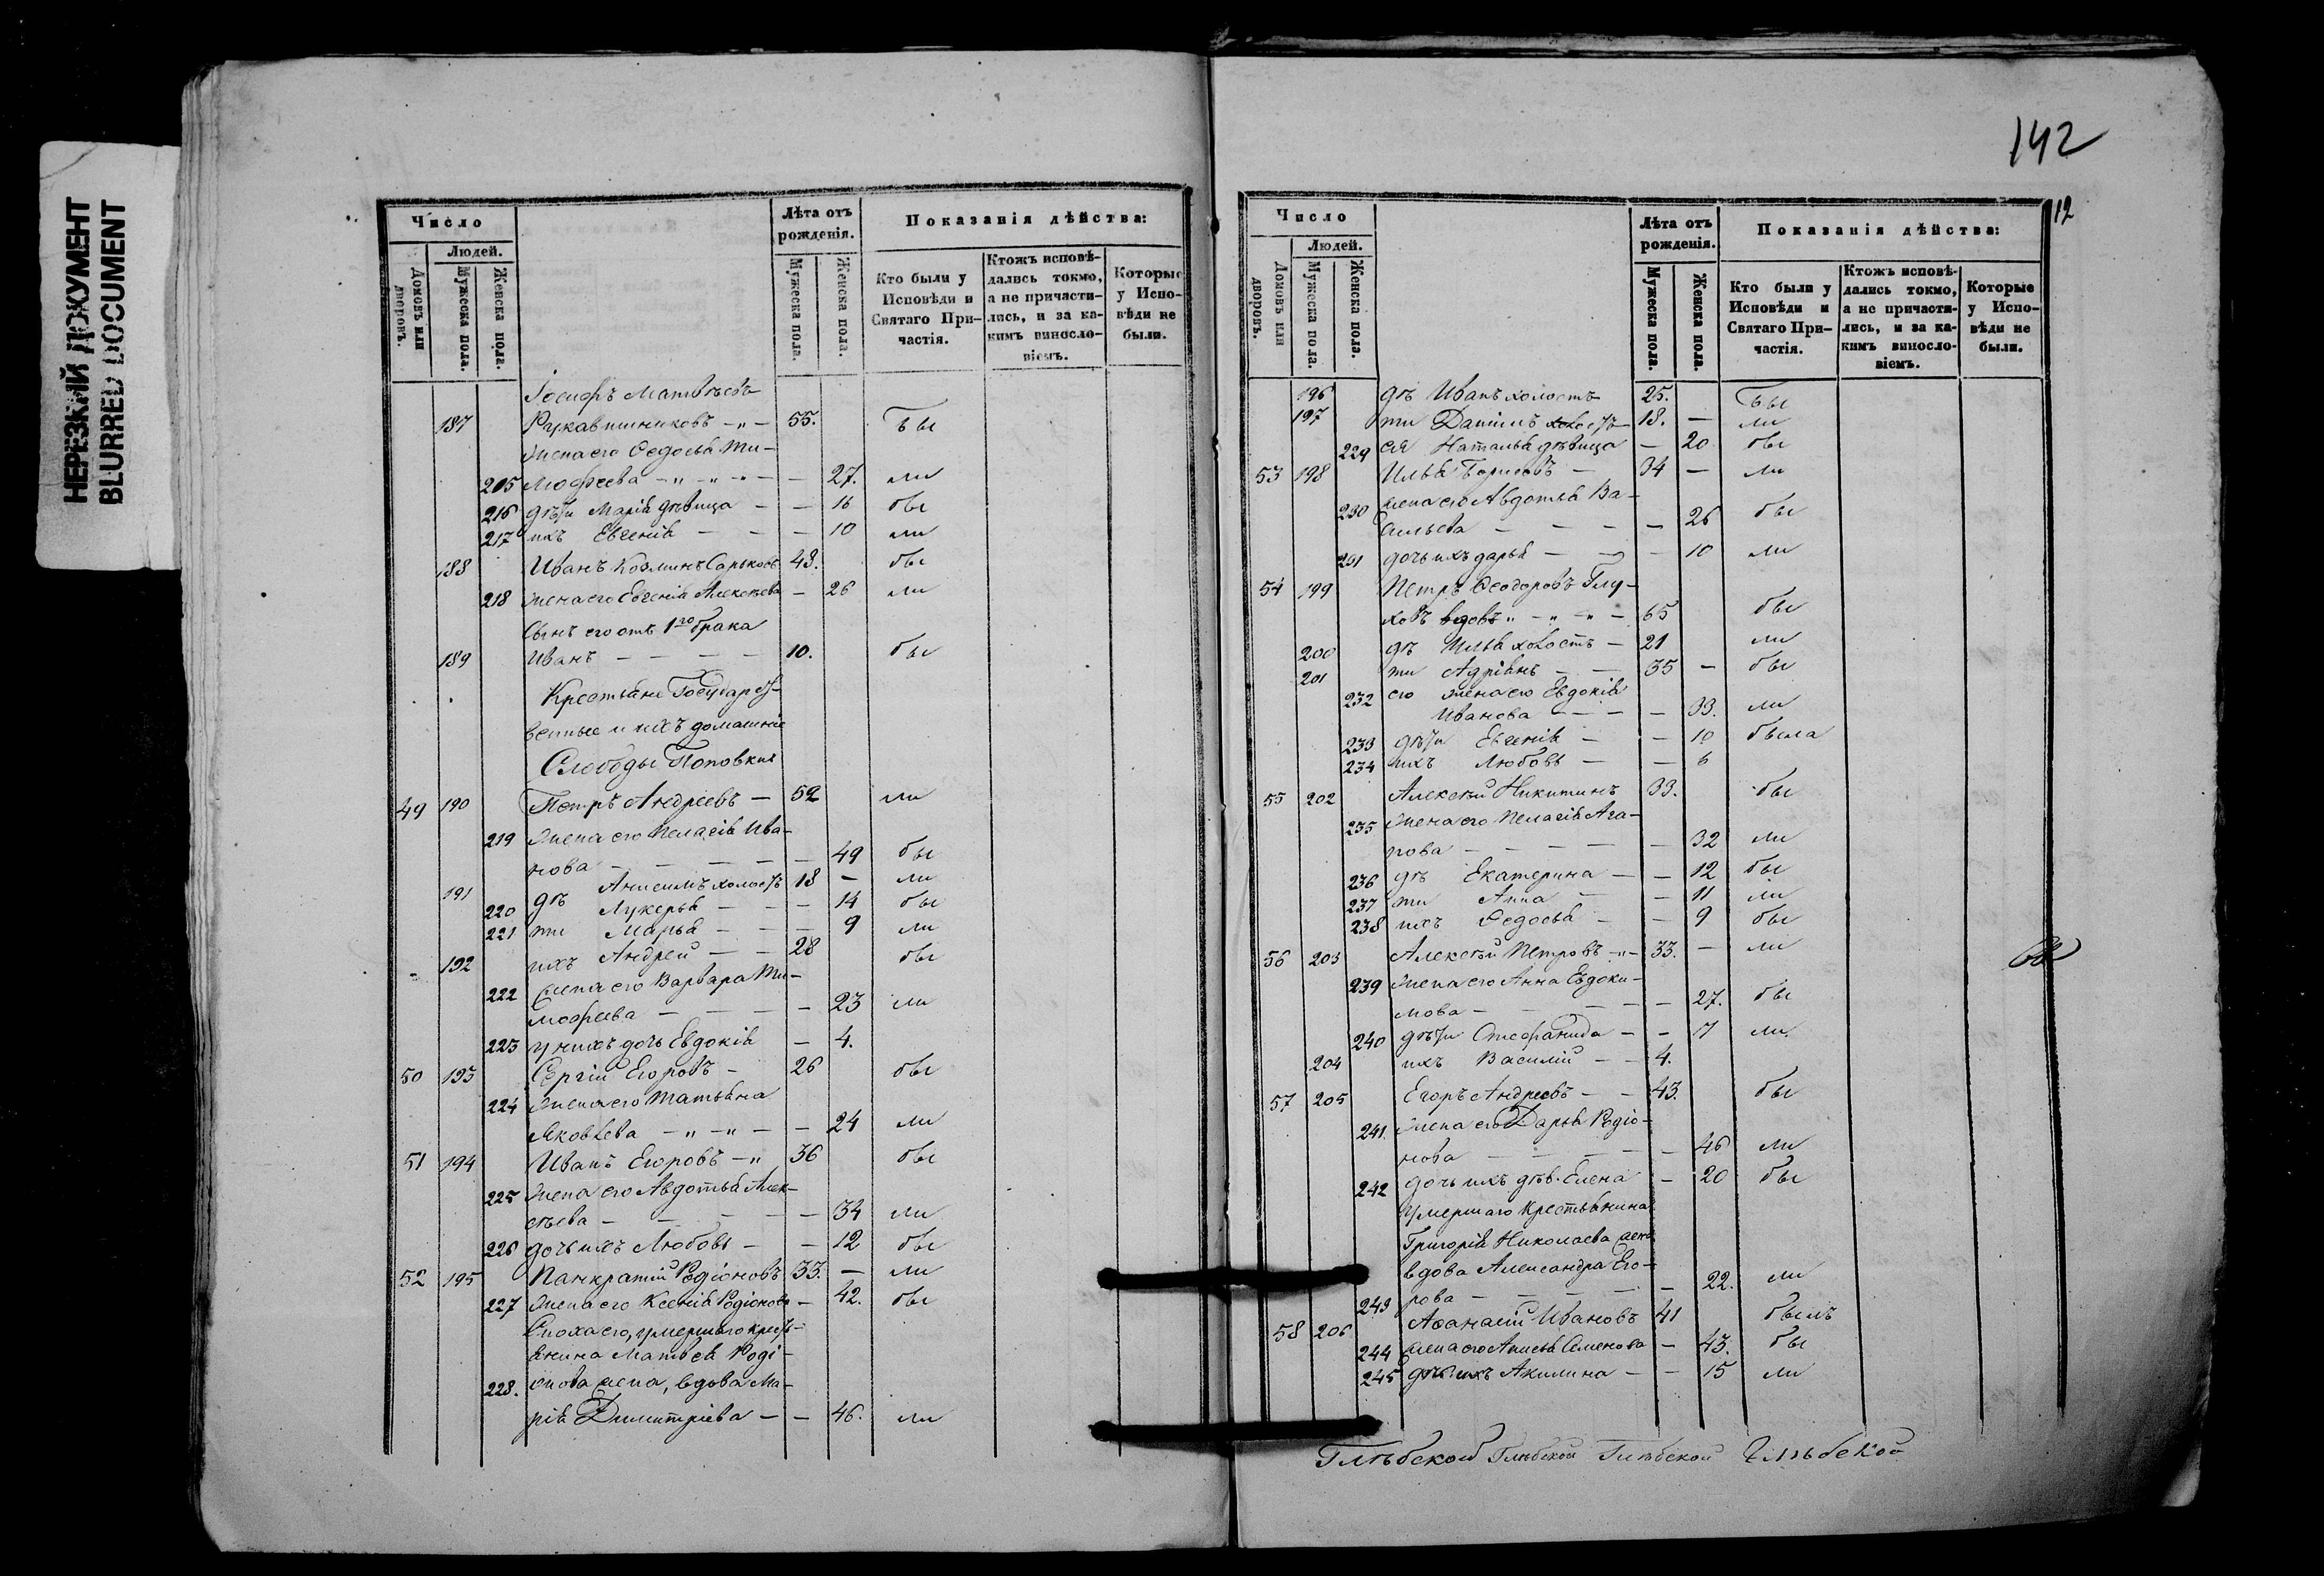 НЕРЕЗКИЙ ДОКУМЕНТ
BLURRED DOCUMENT
Число
Людей.
Домовъ или дворовъ.
Мужеска пола.
Женска пола.
Лѣта отъ рожденія.
Мужеска пола.
Женска пола.
Показанія дѣйства:
Кто были у Исповѣди и Святаго Причастія.
Ктожъ исповѣдались токмо, а не причастились, и за какимъ винословіемъ.
Которые у Исповѣди не были.
Іосифъ Матвѣевъ
187 Рукавишниковъ -"- 55. Бы
жена его Ѳедосья Ти-
215 моѳеева - " - " - - 27. ли
216 дѣти Марія дѣвица - - 16 бы
217 ихъ Евгенія - - - 10 ли
188 Иванъ Козминъ Сарыковъ 48. бы
218 жена его Евгенія Алексѣева - 26 ли
Сынъ его отъ 1го брака
189 Иванъ - - - - 10. бы
Крестьяне Государст-
венные и ихъ домашніе
Слободы Поповкия
49 190 Петръ Андреевъ - 52 ли
219 жена его Пелагія Ива-
нова - - - - - 49 бы
191 дѣ Анисимъ холостъ 18 - ли
220 Лукерья - - - 14 бы
221 ти Марья - - - 9 ли
192 ихъ Андрей - - 28 бы
222 жена его Варвара Ти-
моѳеева - - - - 23 ли
223 у нихъ дочь Евдокія - 4.
50 193 Сергій Егоровъ - 26 бы
224 жена его Татьяна
Яковлева - " - " - - 24 ли
51 194 Иванъ Егоровъ - " 36 бы
225 жена его Авдотья Алек-
сѣева - - - - - 34 ли
226 дочь ихъ Любовь - - 12 бы
52 195 Панкратій Родіоновъ 33. - ли
227 жена его Ксенія Родіонова - 42. бы
Сноха его, умершаго крест-
янина Матвея Роді-
228. онова жена, вдова Ма-
рія Димитріева - - 46. ли
142
12
Число
Людей.
Домовъ или дворовъ.
Мужеска пола.
Женска пола.
Лѣта отъ рожденія.
Мужеска пола.
Женска пола.
Показанія дѣйства:
Кто были у Исповѣди и Святаго Причастія.
Ктожъ исповѣдались токмо, а не причастились, и за какимъ винословіемъ.
Которые у Исповѣди не были.
196 дѣ Иванъ холостъ 25. Бы
197 ти Даніилъ холостъ 18. - ли
229 ея Наталья дѣвица - 20 бы
53 198 Илья Борисовъ - 34 - ли
230 жена его Авдотья Ва-
сильева - - - - 26 бы
231 дочь ихъ дарья - - - 10 ли
54 199 Петръ Ѳеодоровъ Глу-
ховъ вдовъ " - " - " - 65 бы
200 дѣ Илья холостъ - 21 ли
201 ти Адріанъ - - 35 - бы
232 его жена его Евдокія
Иванова - - - - 33. ли
233 дѣти Евгенія - - 10 была
234 ихъ Любовь - - 6
55 202 Алексѣй Никитинъ 33. бы
235 жена его Пелагія Ага-
пова - - - - - 32 ли
236 дѣ Екатерина - - 12 бы
237 ти Анна - - 11 ли
238 ихъ Ѳедосья - - 9 бы
56 203 Алексѣй Петровъ -"- 33. - ли
239 жена его Анна Евдоки-
мова - - - - - 27. бы
240 дѣти Стефанида - - 7 ли.
204 ихъ Василій - - 4.
57 205 Егоръ Андреевъ - - 43. бы
241. жена его Дарья Родіо-
нова - - - - - 46 ли
242 дочь ихъ дѣв. Елена - 20 бы
умершаго крестьянина
Григорія Николаева жена
вдова Александра Его-
243 рова - - - - - 22. ли
58 206 Аѳанасій Ивановъ 41 былъ
244 жена его Анисья Семенова - 43. бы
245 дочь ихъ Акилина - - 15 ли
Глѣбской Глѣбской Глѣбской Глѣбской